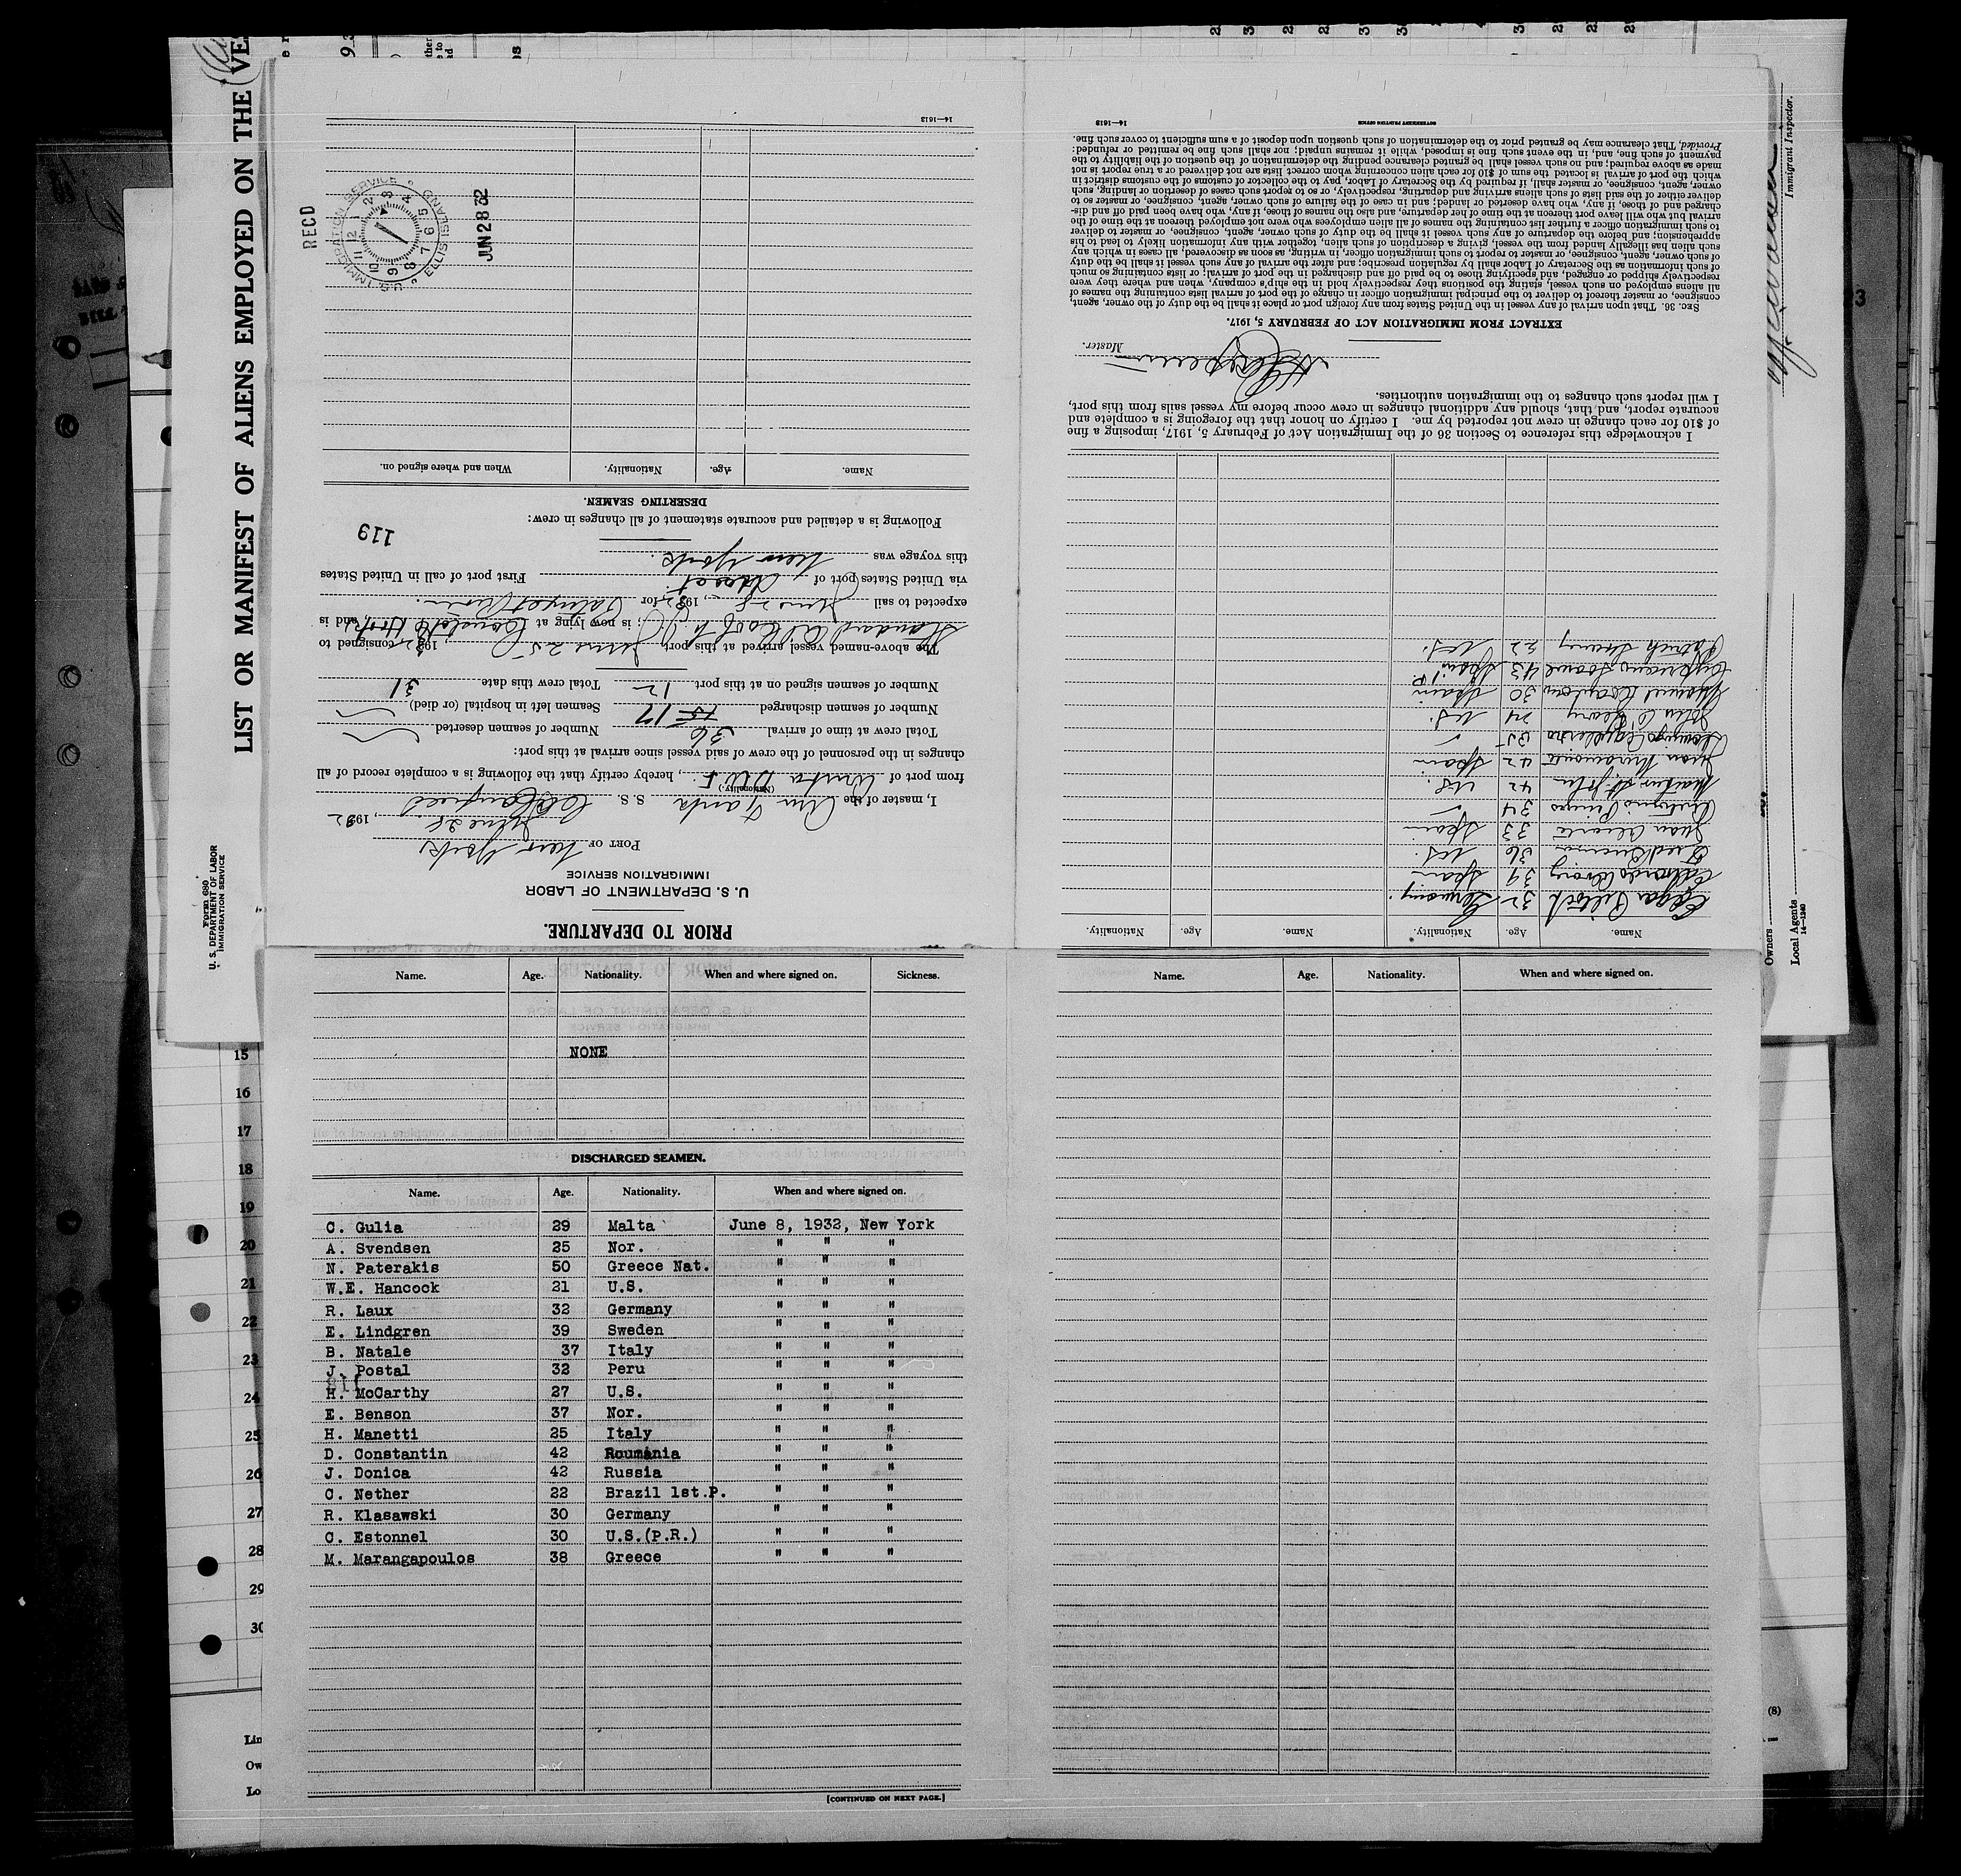 LIST OR MANIFEST OF ALIENS EMPLOYED ON THE
Form 680
U. S. DEPARTMENT OF LABOR
IMMIGRATION SERVICE
PRIOR TO DEPARTURE.
U. S. DEPARTMENT OF LABOR
IMMIGRATION SERVICE
PORT OF New York
June 28, 1932
I, master of the Am Tank S. S.
(Nationality.)
from port of Aruba D.W.I., hereby certify that the following is a complete record of all
changes in the personnel of the crew of said vessel since arrival at this port:
Total crew at time of arrival 36 Number of seamen deserted
Number of seamen discharged 15 17 Seamen left in hospital (or died)
Number of seamen signed on at this port 12 Total crew this date 31
The above-named vessel arrived at this port June 25, 1932, consigned to
Standard Oil Co of N.J.; is now lying at Constable Hook, and is
expected to sail June 28, 1932 for
via United States port of Direct. First port of call in United States
this voyage was New York.
119
Following is a detailed and accurate statement of all changes in crew:
DESERTING SEAMEN.
Name. Age. Nationality. When and where signed on.
RECD
U.S. IMMIGRATION SERVICE ELLIS ISLAND
JUN 28 32
14—1613
Name. Age. Nationality. Name. Age. Nationality.
32 Germany.
39 Spain
Fred 36 U.S.
Juan 33 Spain
Antonio 34
42 U.S.
Juan 42 Spain
35
John O'Leary 24 U.S.
Manuel 30 Spain
43 Spain 1 P.
Patrick 22 U.S.
I acknowledge this reference to Section 36 of the Immigration Act of February 5, 1917, imposing a fine
of $10 for each change in crew not reported by me. I certify on honor that the foregoing is a complete and
accurate report, and that, should any additional changes in crew occur before my vessel sails from this port,
I will report such changes to the immigration authorities.
Master.
EXTRACT FROM IMMIGRATION ACT OF FEBRUARY 5, 1917.
SEC. 36. That upon arrival of any vessel in the United States from any foreign port or place it shall be the duty of the owner, agent,
consignee, or master thereof to deliver to the principal immigration officer in charge of the port of arrival lists containing the names of
all aliens employed on such vessel, stating the positions they respectively hold in the ship's company, when and where they were
respectively shipped or engaged, and specifying those to be paid off and discharged in the port of arrival; or lists containing so much
of such information as the Secretary of Labor shall by regulation prescribe; and after the arrival of any such vessel it shall be the duty
of such owner, agent, consignee, or master to report to such immigration officer, in writing, as soon as discovered, all cases in which any
such alien has illegally landed from the vessel, giving a description of such alien, together with any information likely to lead to his
apprehension; and before the departure of any such vessel it shall be the duty of such owner, agent, consignee, or master to deliver
to such immigration officer a further list containing the names of all alien employees who were not employed thereon at the time of the
arrival but who will leave port thereon at the time of her departure, and also the names of those, if any, who have been paid off and dis-
charged and of those, if any, who have deserted or landed; and in case of the failure of such owner, agent, consignee, or master so to
deliver either of the said lists of such aliens arriving and departing, respectively, or so to report such cases of desertion or landing, such
owner, agent, consignee, or master, shall, if required by the Secretary of Labor, pay to the collector of customs of the customs district in
which the port of arrival is located the sum of $10 for each alien concerning whom correct lists are not delivered or a true report is not
made as above required; and no such vessel shall be granted clearance pending the determination of the question of the liability to the
payment of such fine, and, in the event such fine is imposed, while it remains unpaid; nor shall such fine be remitted or refunded:
Provided, That clearance may be granted prior to the determination of such question upon deposit of a sum sufficient to cover such fine.
GOVERNMENT PRINTING OFFICE
14—1613
Immigrant Inspector.
Owners
Local Agents
14—1240
Name. Age. Nationality. When and where signed on. Sickness.
NONE
DISCHARGED SEAMEN.
Name. Age. Nationality. When and where signed on.
C. Gulia 29 Malta June 8, 1932, New York
A. Svendsen 25 Nor. " " "
N. Paterakis 50 Greece Nat. " " "
W.E. Hancock 21 U.S. " " "
R. Laux 32 Germany " " "
E. Lindgren 39 Sweden " " "
B. Natale 37 Italy " " "
J. Postal 32 Peru " " "
H. McCarthy 27 U.S. " " "
E. Benson 37 Nor. " " "
H. Manetti 25 Italy " " "
D. Constantin 42 Roumania " " "
J. Donica 42 Russia " " "
C. Nether 22 Brazil 1st.P. " " "
R. Klasawski 30 Germany " " "
C. Estonnel 30 U.S.(P.R.) " " "
M. Marangapoulos 38 Greece " " "
[CONTINUED ON NEXT PAGE.]
Name. Age. Nationality. When and where signed on.
15
16
17
18
19
20
21
22
23
24
25
26
27
28
29
30
(8)